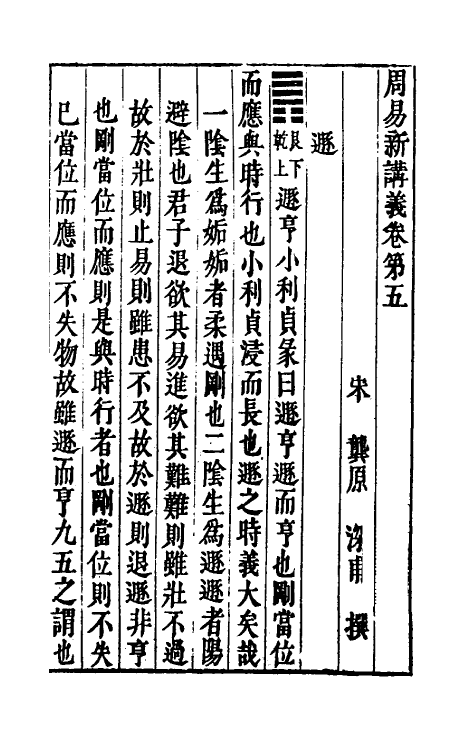 周易新講義卷第五
宋 龔原 深甫 撰
遯
䷠艮下乾上遯亨小利貞彖曰遯亨遯而亨也剛當位
而應與時行也小利貞浸而長也遯之時義大矣哉
一陰生爲姤姤者柔遇剛也二陰生爲遯遯者陽
避陰也君子退欲其易進欲其難難則雖壯不過
故於壯則止易則雖患不及故於遯則退遯非亨
也剛當位而應則是與時行者也剛當位則不失
已當位而應則不失物故雖遯而亨九五之謂也